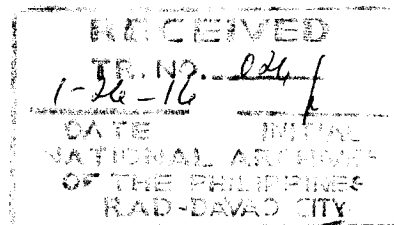 RECEIVED
TR. NO. 024
1-26-16
DATE INITIAL
NATIONAL ARCHIVES
OF THE PHILIPPINES
RAD-DAVAO CITY